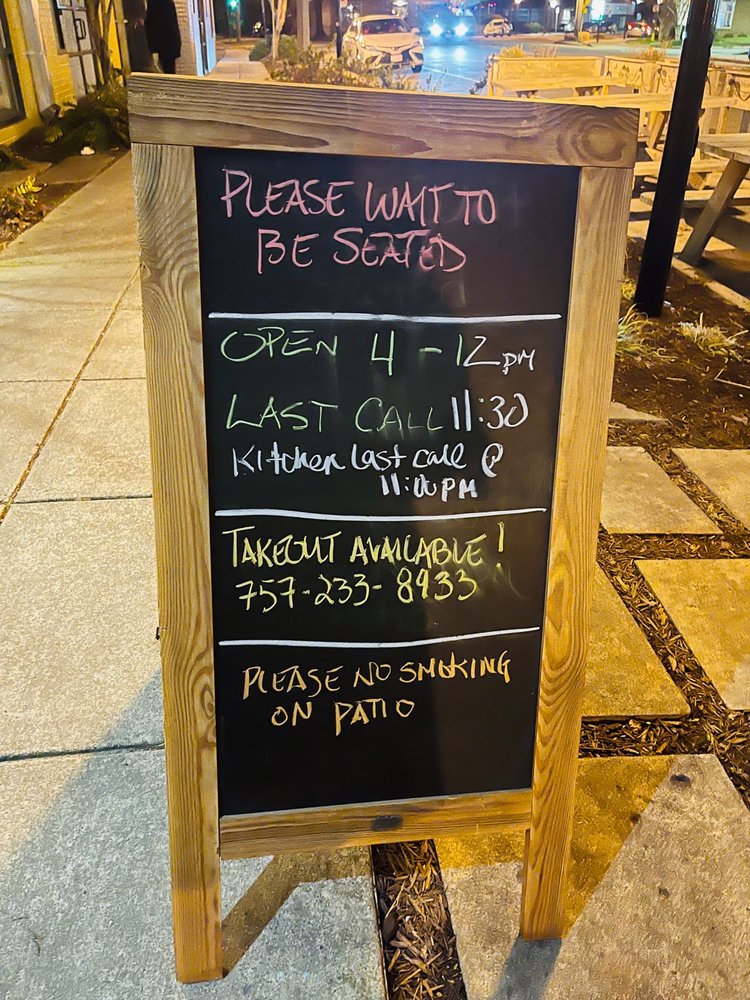 PLEASE WAIT TO
BE SEATED
OPEN 4 - 12 PM
LAST CALL 11:30
Kitchen last call @
11:00 PM
TAKEOUT AVAILABLE!
757-233-8933
PLEASE NO SMOKING
ON PATIO